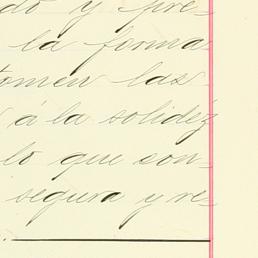 do y pre-
la forma
tomen las
á la solidéz
lo que con-
segura y re-